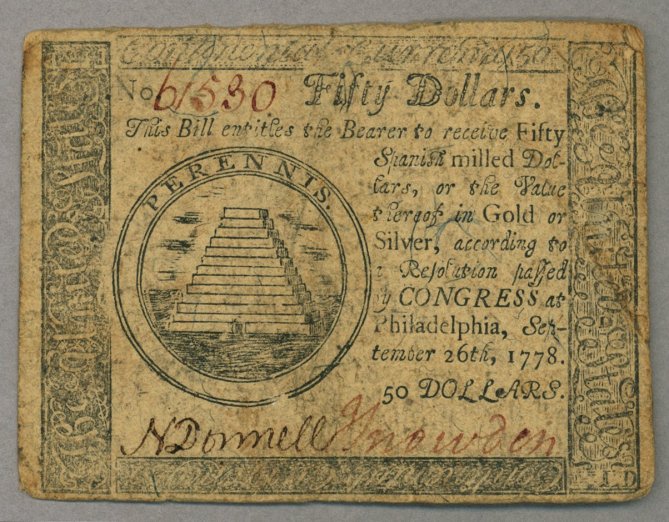 Continental Currency 50
No 61530 Fifty Dollars.
This Bill entitles the Bearer to receive Fifty
Spanish milled Dol-
lars, or the Value
thereof in Gold or
Silver, according to
a Resolution passed
by CONGRESS at
Philadelphia, Sep-
tember 26th, 1778.
50 DOLLARS.
PERENNIS.
N Donnell J Snowden
I. D